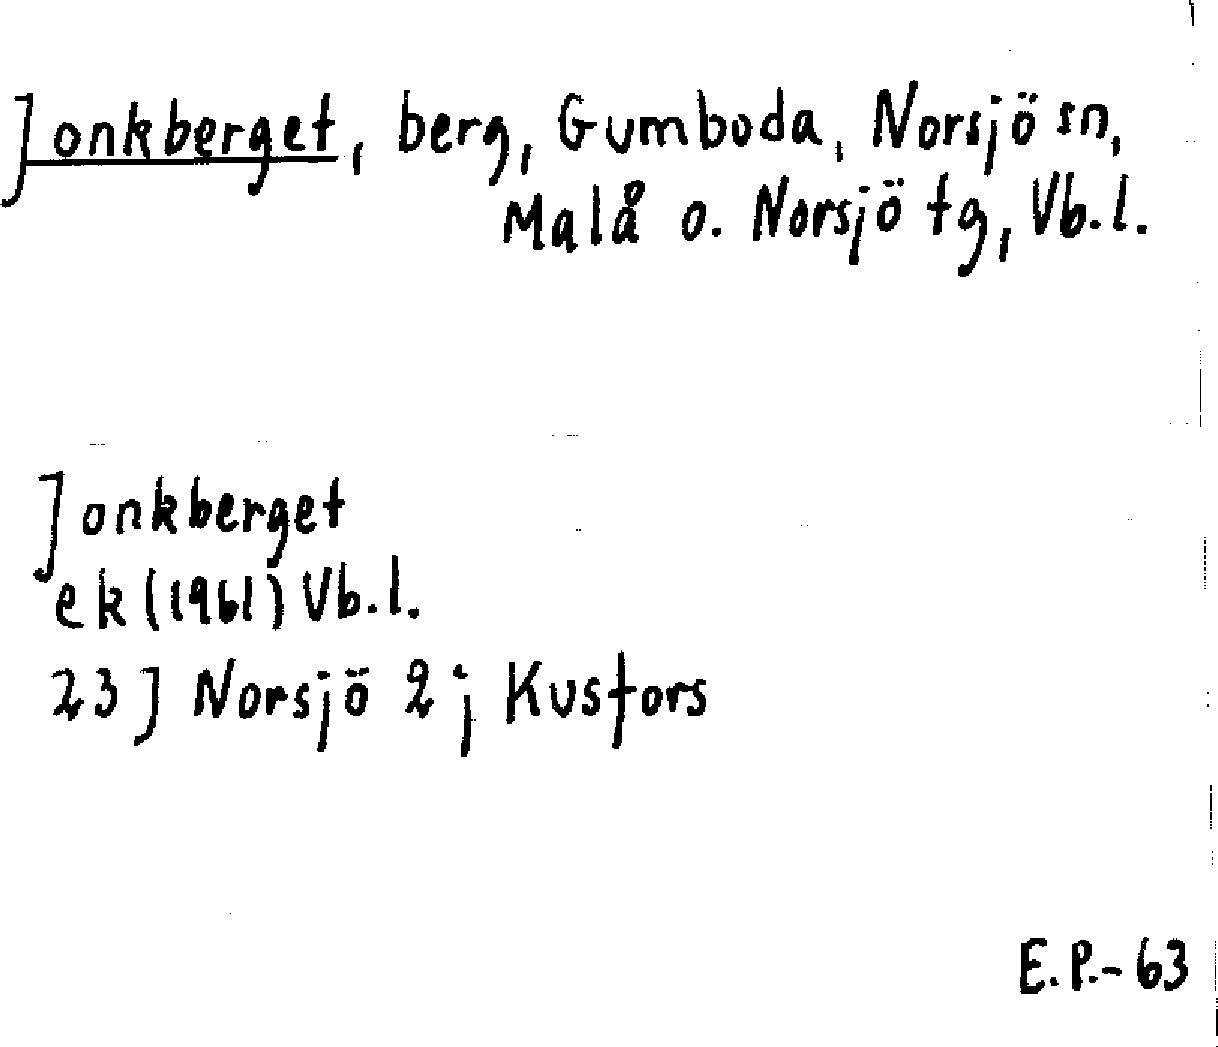 Jonkberget, berg, Gumboda, Norsjö sn,
Malå o. Norsjö tg, Vb.l.
Jonkberget
ek (1961) Vb.l.
23 J Norsjö 2 j Kusfors
E.P.-63